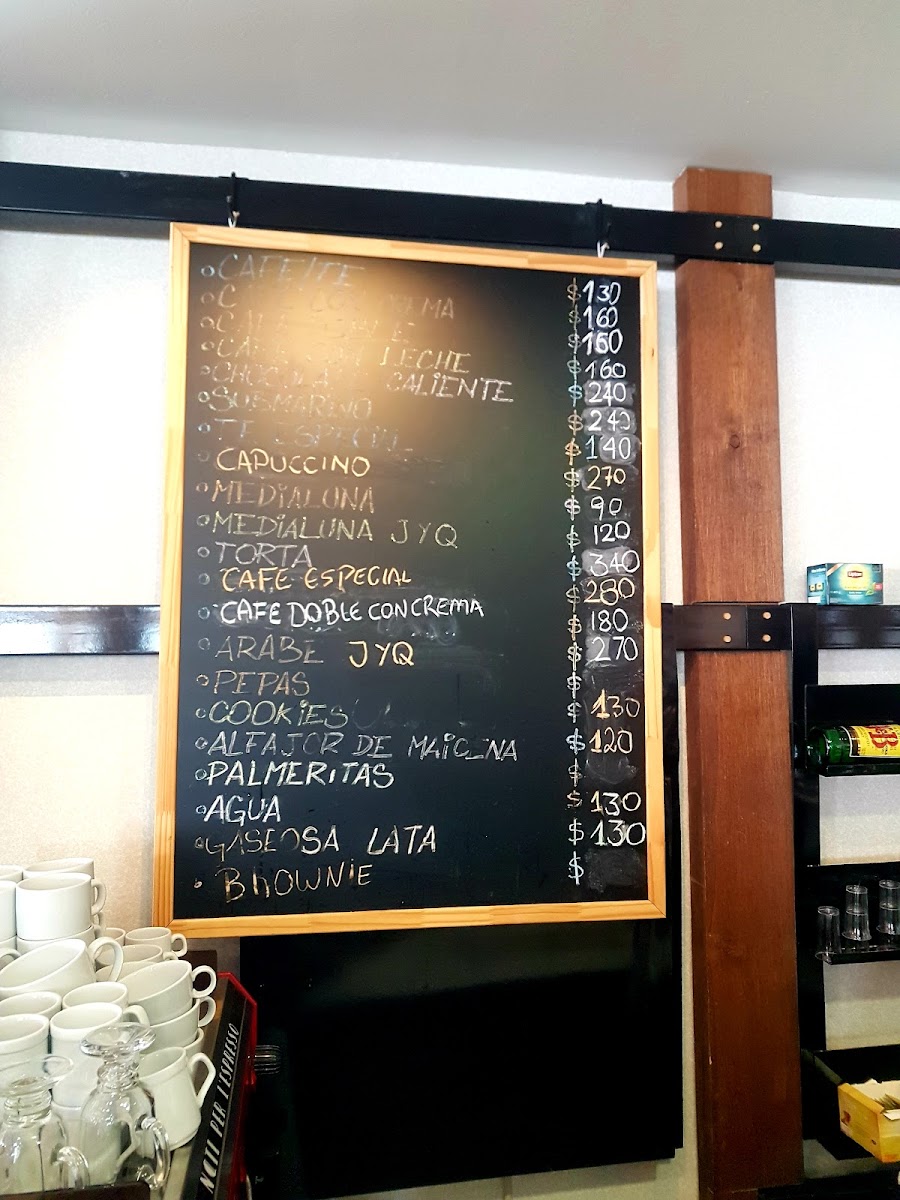 CAFE/TE $130
CAFE CON CREMA $160
CAFE DOBLE $160
CAFE CON LECHE $160
CHOCOLATE CALIENTE $240
SUBMARINO $240
TE ESPECIAL $140
CAPUCCINO $270
MEDIALUNA $90
MEDIALUNA JYQ $120
TORTA $340
CAFE ESPECIAL $280
CAFE DOBLE CON CREMA $180
ARABE JYQ $270
PEPAS $
COOKIES $130
ALFAJOR DE MAICENA $120
PALMERITAS $
AGUA $130
GASEOSA LATA $130
BROWNIE $
Lipton
B
PER L'ESPRESSO